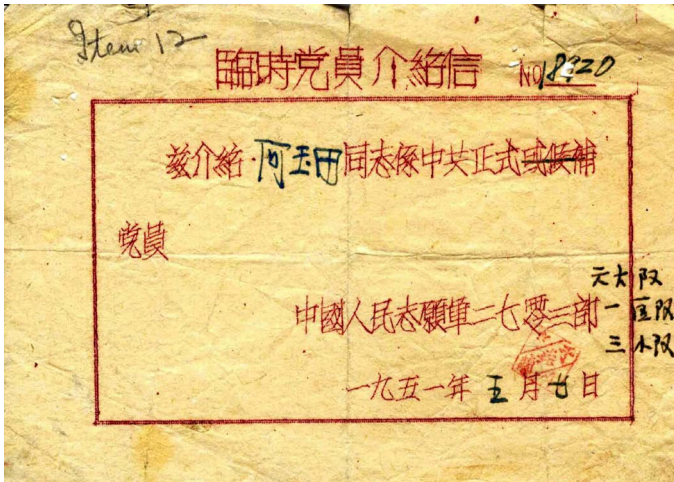 Item 12
臨時党員介紹信 NO 18920
兹介紹 阿玉田同志係中共正式或候補
党員
中國人民志願軍二七零三部
元大队
一区队
三小队
一九五一年 五月廿日